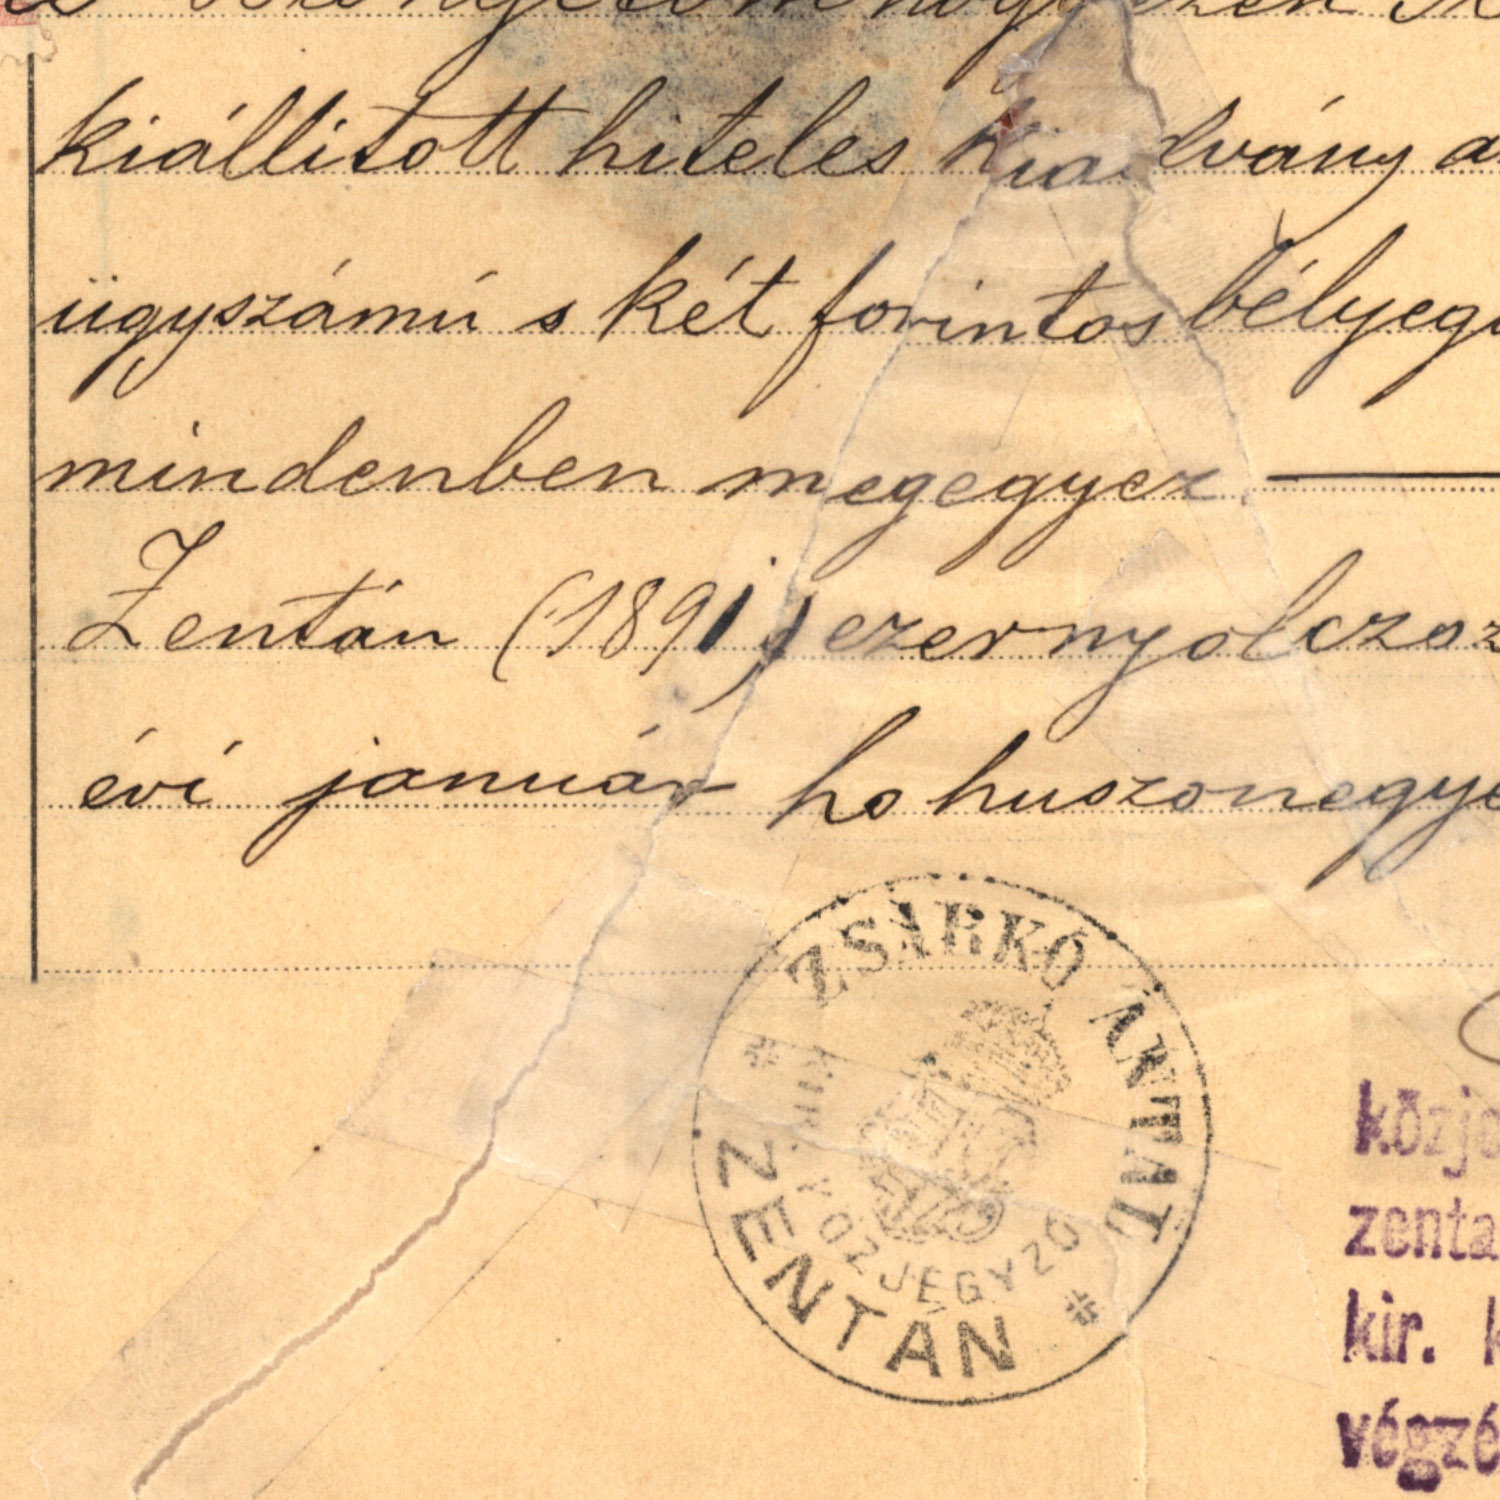 kiállitott hiteles kiadvány
ügyszámú s két forintos
mindenben megegyez
Zentán (1891) ezernyolcz
évi január hó huszonegye
ZSARKÓ ANTAL
KIR. KÖZJEGYZŐ
ZENTÁN
közje
zenta
kir. k
végzé